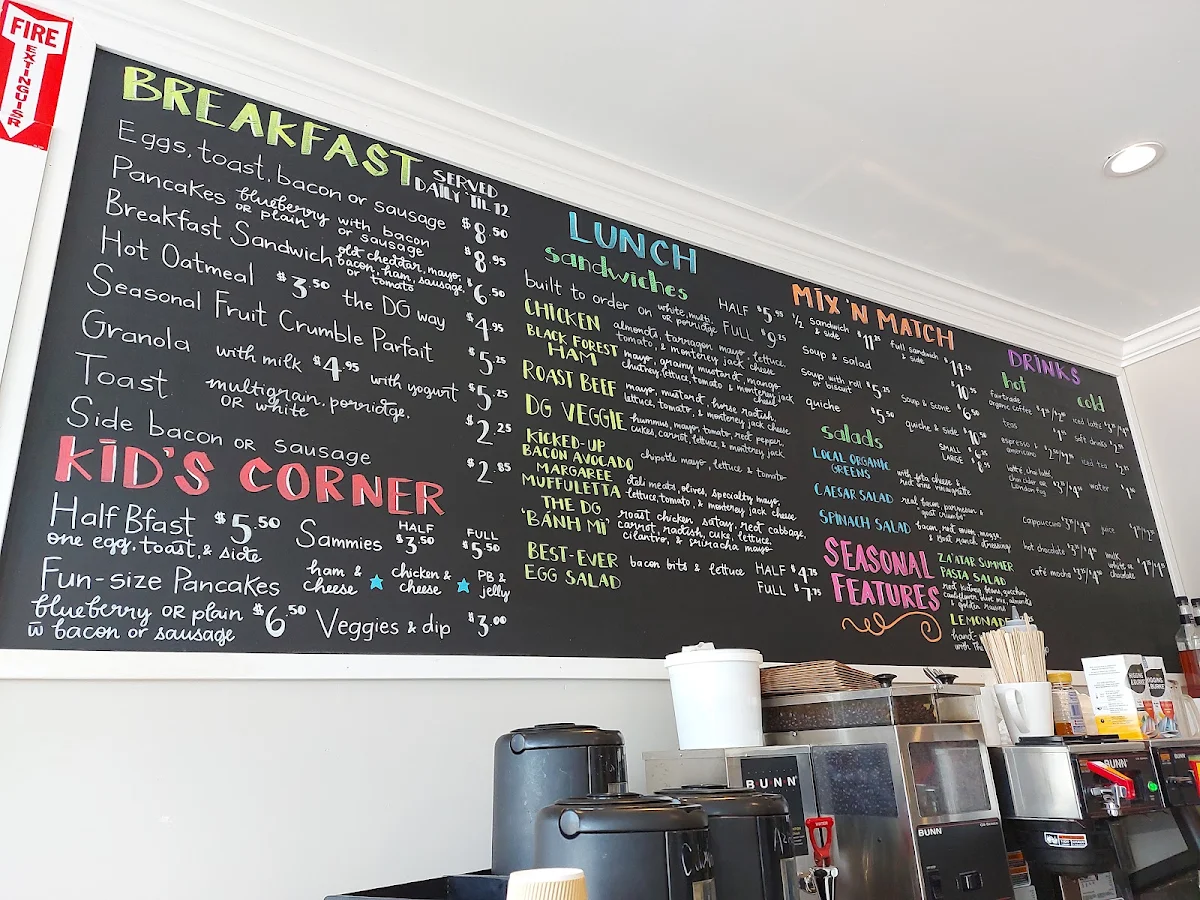 FIRE
EXTINGUISHER
BREAKFAST SERVED
DAILY 'TIL 12
Eggs, toast, bacon or sausage $8.50
Pancakes blueberry or plain with bacon or sausage $8.95
Breakfast Sandwich old cheddar, mayo, bacon, ham, sausage, or tomato $6.50
Hot Oatmeal $3.50 the DG way $4.95
Seasonal Fruit Crumble Parfait $5.25
Granola with milk $4.95 with yogurt $5.25
Toast multigrain, porridge, OR white $2.25
Side bacon or sausage $2.85
KID'S CORNER
Half Bfast $5.50
one egg, toast, & side
Fun-size Pancakes
blueberry OR plain $6.50
w bacon or sausage
Sammies HALF $3.50 FULL $5.50
ham & cheese ★ chicken & cheese ★ PB & jelly
Veggies & dip $3.00
LUNCH
sandwiches
built to order on white, multi, or porridge HALF $5.95 FULL $9.25
CHICKEN almonds, tarragon mayo, lettuce, tomato, & monterey jack cheese
BLACK FOREST HAM mayo, grainy mustard, mango chutney, lettuce, tomato & monterey jack
ROAST BEEF mayo, mustard, horse radish, lettuce, tomato, & monterey jack cheese
DG VEGGIE hummus, mayo, tomato, red pepper, cukes, carrot, lettuce, & monterey jack
KICKED-UP BACON AVOCADO chipotle mayo, lettuce & tomato
MARGAREE MUFFULETTA deli meats, olives, specialty mayo, lettuce, tomato, & monterey jack cheese
THE DG 'BÁNH MÌ' roast chicken, satay, red cabbage, carrot, radish, cuke, lettuce, cilantro, & sriracha mayo
BEST-EVER EGG SALAD bacon bits & lettuce HALF $4.75
FULL $7.75
MIX 'N MATCH
1/2 sandwich & side $11.25 full sandwich & side $14.25
soup & salad $10.95
soup with roll or biscuit $5.25 soup & scone $6.50
quiche $5.50 quiche & side $10.50
salads SMALL $6.25
LARGE $8.95
LOCAL ORGANIC GREENS with feta cheese & red wine vinaigrette
CAESAR SALAD real bacon, parmesan &
SPINACH SALAD bacon, red onion,
SEASONAL
FEATURES
ZA'ATAR SUMMER
PASTA SALAD
red kidney beans, zucchini,
cauliflower, olive mix, almonds
& golden raisins
LEMONADE
DRINKS
hot cold
fairtrade organic coffee iced latte
teas soft drinks
espresso americano iced tea
latté, chai latté, chai cider or London fog water
cappuccino juice
hot chocolate milk white or chocolate
café mocha
BUNN
BUNN
BUNN